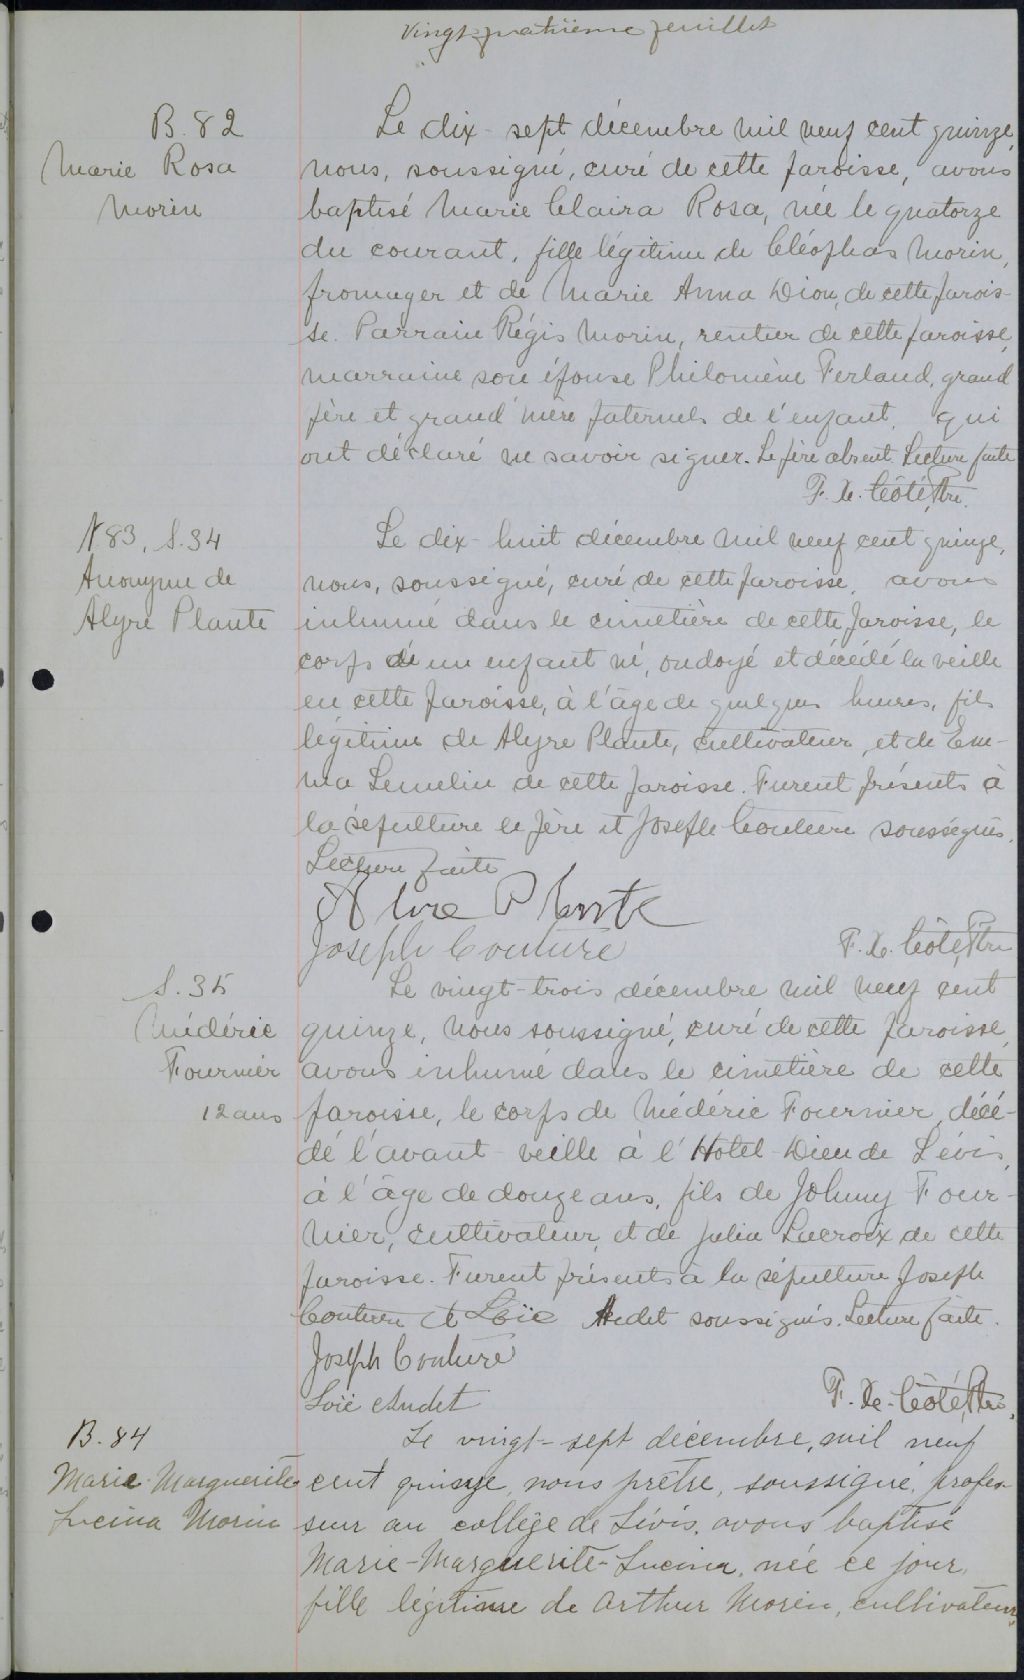 Vingt-quatrième feuillet
B. 82
Marie Rosa
Morin
Le dix-sept décembre mil neuf cent quinze,
nous, soussigné, curé de cette paroisse, avons
baptisé Marie Claira Rosa, née le quatorze
du courant, fille légitime de Cléophas Morin,
fromager et de Marie Anna Dion, de cette parois-
se. Parrain Régis Morin, rentier de cette paroisse,
marraine son épouse Philomène Ferland, grand
père et grand'mère paternels de l'enfant, qui
ont déclaré ne savoir signer. Le père absent. Lecture faite
F. X. Côté, Ptre.
N 83, S. 34
Anonyme de
Alyre Plante
Le dix-huit décembre mil neuf cent quinze,
nous, soussigné, curé de cette paroisse, avons
inhumé dans le cimetière de cette paroisse, le
corps de un enfant né, ondoyé et décédé la veille
en cette paroisse, à l'âge de quelques heures, fils
légitime de Alyre Plante, cultivateur, et de Em-
ma Lemelin de cette paroisse. Furent présents à
la sépulture le père et Joseph Couture soussignés.
Lecture faite
Alyre Plante
Joseph Couture
F. X. Côté, Ptre
S. 35
Médéric
Fournier
12 ans
Le vingt-trois décembre mil neuf cent
quinze, nous soussigné, curé de cette paroisse,
avons inhumé dans le cimetière de cette
paroisse, le corps de Médéric Fournier, décé-
dé l'avant-veille à l'Hotel-Dieu de Lévis,
à l'âge de douze ans, fils de Johnny Four-
nier, cultivateur, et de Julia Lacroix de cette
paroisse. Furent présents à la sépulture Joseph
Couture et Loïc Audet soussignés. Lecture faite.
Joseph Couture
Loïc Audet
F. X. Côté, Ptre.
B. 84
Marie-Marguerite
Lucina Morin
Le vingt-sept décembre, mil neuf
cent quinze, nous prêtre, soussigné, profes-
seur au collège de Lévis, avons baptisé
Marie-Marguerite-Lucina, née ce jour,
fille légitime de Arthur Morin, cultivateur,